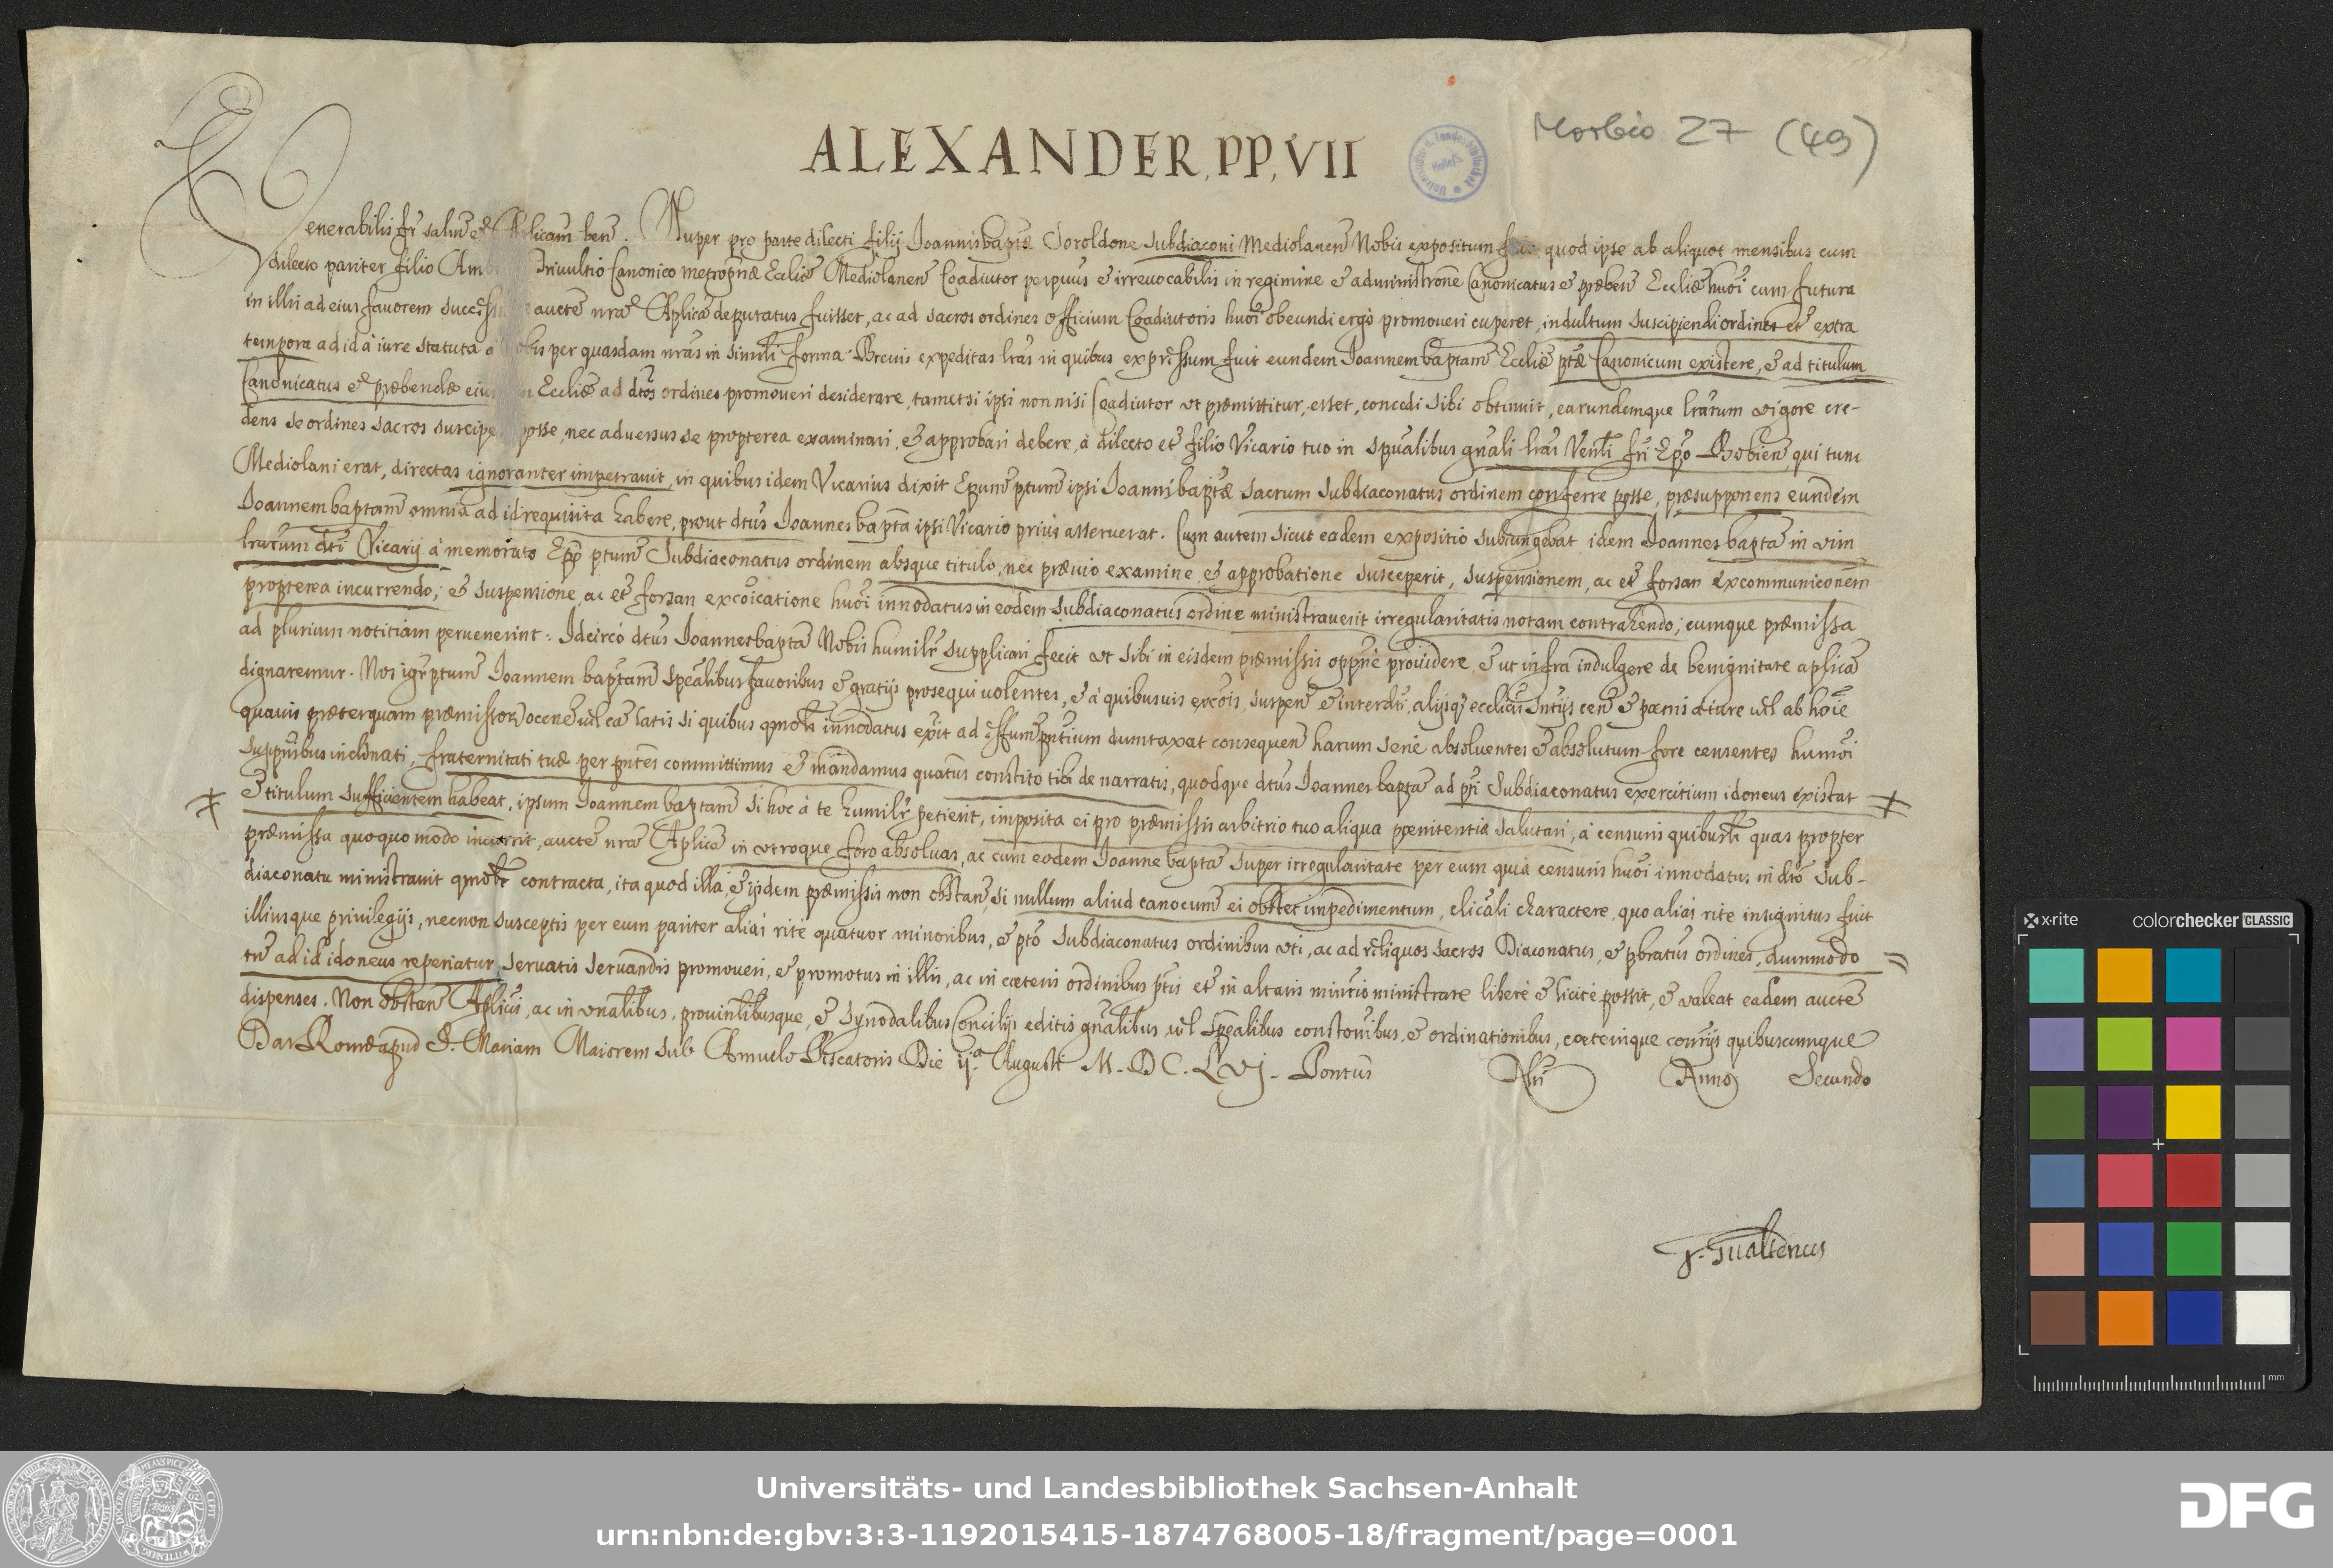 ALEXANDER, PP, VII
Morbio 27 (49)
Venerabilis fr̃ salut̃ et Ap̃licam ben̄. Nuper pro parte dilecti filij Joannisbapt̃æ Soroldone subdiaconi Mediolanen̄ Nobis expositum quod ipse ab aliquot mensibus cum
dilecto pariter filio Triuultio Canonico metrop̃næ Eccliæ Mediolanen̄ Coadiutor perpuus et irreuocabilis in regimine et administrone Canonicatus et præben̄ Eccliæ huōi cum futura
in illis ad eius fauorem aucte nrā Aplicā deputatus fuisset, ac ad sacros ordines officium Coadiutoris huōi obeundi ergò promoueri cuperet, indultum suscipiendi ordines et extra
tempora ad id à iure statuta à per quasdam nras in simili forma Breuis expeditas lrās in quibus expressum fuit eundem Joannem baptam̄ Eccliæ ptæ Canonicum existere, et ad titulum
Canonicatus et præbendæ Eccliæ ad dtos ordines promoueri desiderare, tametsi ipsi non nisi Coadiutor ut præmittitur, esset, concedi sibi obtinuit, earundemque lrārum vigore cre-
dens se ordines sacros posse, nec aduersus se propterea examinari, et approbari debere, à dilecto et filio Vicario tuo in spualibus gnali lrās Venli fri Epo Bobien̄, qui tunc
Mediolani erat, directas ignoranter impetrauit, in quibus idem Vicarius dixit Epum̄ ptum̄ ipsi Joannibaptæ sacrum subdiaconatus ordinem conferre posse, præsupponens eundem
Joannem baptam̄ omnia ad id requisita habere, prout dtus Joannes bapta ipsi Vicario prius asseruerat. Cum autem sicut eadem expositio subiungebat idem Joannes bapta in vim
lrarum dti Vicarij à memorato Epō ptum̄ Subdiaconatus ordinem absque titulo, nec præuio examine, et approbatione susceperit, suspensionem, ac et forsan excommuniconem
propterea incurrendo; et suspensione, ac et forsan excoicatione huōi innodatus in eodem subdiaconatus ordine ministrauerit irregularitatis notam contrahendo; cumque præmissa
ad plurium notitiam peruenerint: Idcircò dtus Joannesbapta Nobis humilr̄ supplicari fecit ut sibi in eisdem præmissis oppnè prouidere, et ut infra indulgere de benignitate aplicā
dignaremur. Nos igr̄ ptum̄ Joannem baptam̄ spealibus fauoribus et gratijs prosequi uolentes, et à quibusuis excois, suspen̄ et interdti, alijsq̨ ecclicis sntijs cen̄ et pœnis à iure vel ab hoīe
quauis præterquam præmissor̄ occ̄ne vel cā latis si quibus qmolt innodatus exit ad effum̄ pntium dumtaxat consequen̄ harum serie absoluentes et absolutum fore censentes humōi
suppnibus inclinati, fraternitati tuæ per pntes committimus et mandamus quatus constito tibi de narratis, quodque dtus Joannes bapta ad pti Subdiaconatus exercitium idoneus existat
et titulum sufficientem habeat, ipsum Joannem baptam̄ si hoc à te humilr̄ petierit, imposita ei pro præmissis arbitrio tuo aliqua pœnitentia salutari, à censuris quibuslt quas propter
præmissa quoquo modo incurrit, aucte nrā Aplicā in vtroque foro absoluas, ac cum eodem Joanne bapta super irregularitate per eum quia censuris huōi innodatus in dto sub-
diaconatu ministrauit qmolt contracta, ita quod illa, et ijsdem præmissis non obstan̄, si nullum aliud canocum̄ ei obstet impedimentum, clicali charactere, quo aliās rite insignitus fuit
illiusque priuilegijs, necnon susceptis per eum pariter aliās ritè quatuor minoribus, et pto subdiaconatus ordinibus vti, ac ad reliquos sacros Diaconatus, et pbratus ordines, dummodo
tn̄ ad id idoneus reperiatur, seruatis seruandis promoueri, et promotus in illis, ac in cæteris ordinibus ptis et in altaris minrio ministrare liberè et licitè possit, et valeat eadem aucte
dispenses. Non obstan̄ Aplicis, ac in vnalibus, prouinlibusque, et Synodalibus Concilijs editis gnalibus vel spealibus constonibus, et ordinationibus, cæterisque conrijs quibuscumque
Dat Romæ apud S. Mariam Maiorem sub Annulo Piscatoris Die ij.ª Augusti M. DC. LVj. Pontus Nri Anno Secundo
Gualterius
x-rite colorchecker CLASSIC
mm
Universitäts- und Landesbibliothek Sachsen-Anhalt
urn:nbn:de:gbv:3:3-1192015415-1874768005-18/fragment/page=0001
DFG